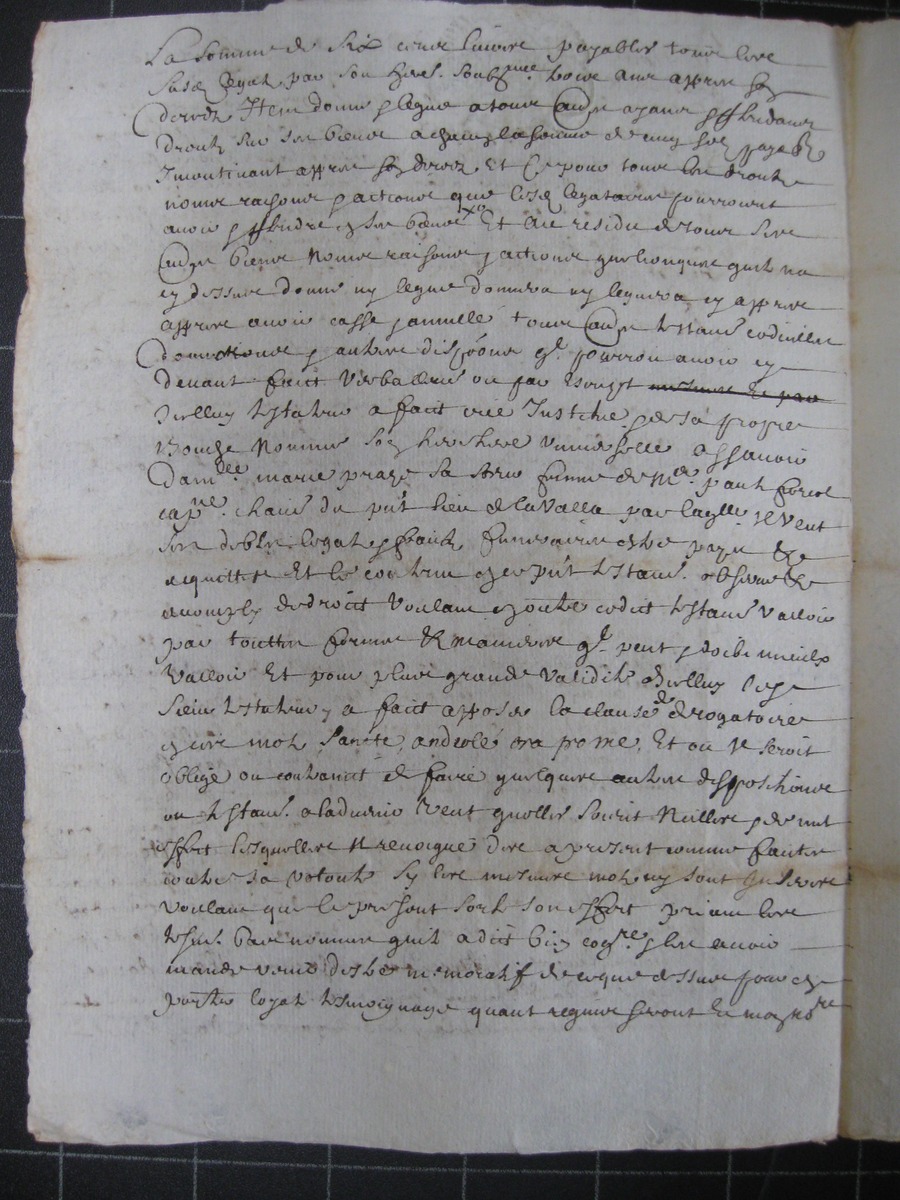 La somme de six cens livres payables tous les
susd legats par son herete soubz nommee troix ans appres son
deces Item donne & legue a tous autres ayans & pretendans
droit sur ses biens a chacung la somme de cinq solz payable
Incontinant appres son deces Et ce pour tous les droits
noms raisons & actions que lesd legataires pourroient
avoir & pretendre en ses biens Et au residu de tous ses
autres biens noms raisons & actions quelconques quil na
cy dessus donne ny legue donnera ny leguera cy appres
appres avoir casse & annullé tous autres testamt codicilles
donnations & autres dispoons qe pourroit avoir cy
devant faict verballemt ou par escript
Icelluy testateur a faict cree Institue & de sa propre
bouche nomme son heretiere universelle assavoir
damlle marie praze sa sœur femme de Mr paul
capne chatt du pnt lieu de lavalla par laqlle Il veut
ses debtes legats & fraictz funeraires estre payes &
acquittes Et le contenu en ce pnt testamt observe &
acomply de droict voulant & joute ce dict testamt valloir
par touttes formes & manieres qe peut & doibt mieulx
valloir Et pour plus grande validité dicelluy led
sieur testateur y a faict apposer la clause derogatoire
en ces motz Sancte andeole ora pro me, Et ou Il seroit
obligé ou contrainct de faire quelques autres dispositions
ou testamt a ladvenir veut quelles soient nulles & de nul
effect lesquelles Il renoique des a present comme faictes
contre sa volonte sy les mesmes motz ny sont Inseres
voulant que le present sorte son effect priant les
tesms bas nommes quil a dict bien cogre & les avoir
mandes venir destre memoratif de ce que dessus pour en
porter loyal tesmoignage quant requis seront Et moy nore